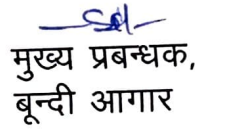 Sd/-
मुख्य प्रबन्धक,
बून्दी आगार